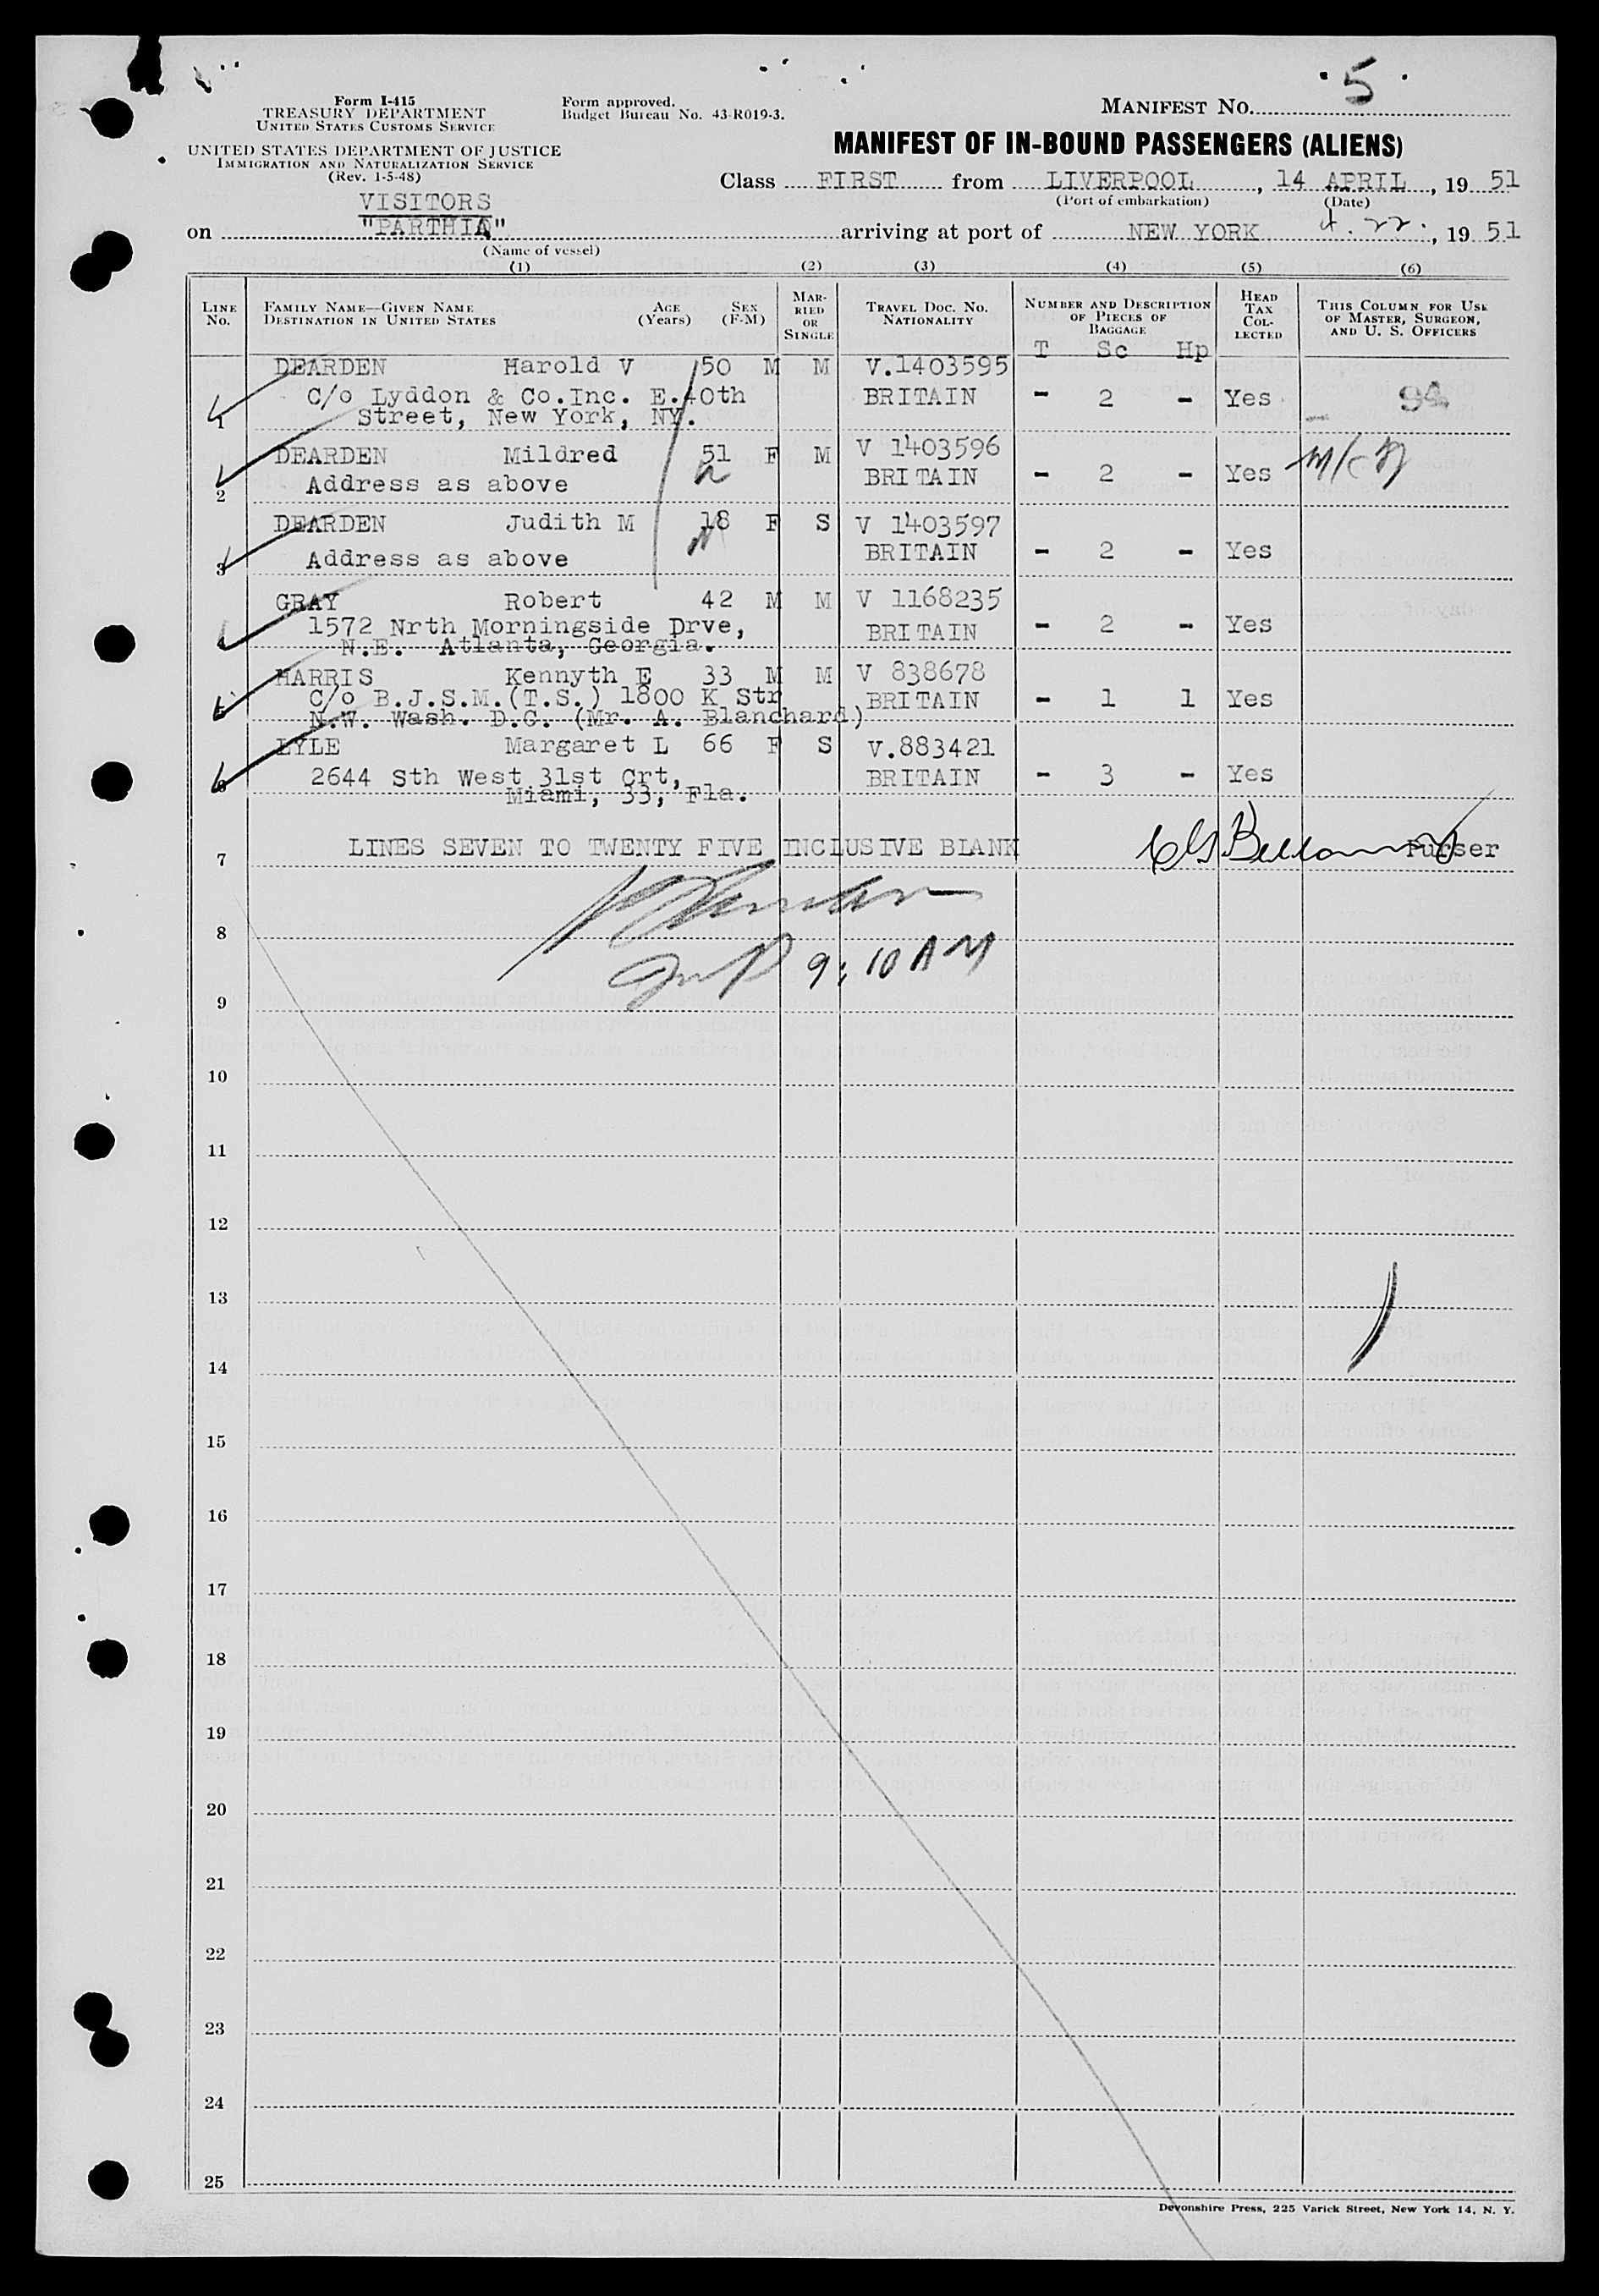 5
Form I-415
TREASURY DEPARTMENT
UNITED STATES CUSTOMS SERVICE
Form approved.
Budget Bureau No. 43-R019-3.
MANIFEST No.
UNITED STATES DEPARTMENT OF JUSTICE
IMMIGRATION AND NATURALIZATION SERVICE
(Rev. 1-5-48)
MANIFEST OF IN-BOUND PASSENGERS (ALIENS)
Class FIRST from LIVERPOOL, 14 APRIL, 19 51
(Port of embarkation) (Date)
VISITORS
on "PARTHIA" arriving at port of NEW YORK 4.22., 19 51
(Name of vessel)
(1) (2) (3) (4) (5) (6)
LINE No. FAMILY NAME—GIVEN NAME DESTINATION IN UNITED STATES AGE (Years) SEX (F-M) MARRIED OR SINGLE TRAVEL DOC. NO. NATIONALITY NUMBER AND DESCRIPTION OF PIECES OF BAGGAGE HEAD TAX COLLECTED THIS COLUMN FOR USE OF MASTER, SURGEON, AND U. S. OFFICERS
T Sc Hp
DEARDEN Harold V 50 M M V.1403595
C/o Lyddon & Co.Inc. E.40th BRITAIN - 2 - Yes
1 Street, New York, NY.
DEARDEN Mildred 51 F M V 1403596
2 Address as above BRITAIN - 2 - Yes
DEARDEN Judith M 18 F S V 1403597
3 Address as above BRITAIN - 2 - Yes
GRAY Robert 42 M M V 1168235
4 1572 Nrth Morningside Drve, BRITAIN - 2 - Yes
N.E. Atlanta, Georgia.
HARRIS Kennyth E 33 M M V 838678
5 C/o B.J.S.M.(T.S.) 1800 K Str BRITAIN - 1 1 Yes
N.W. Wash. D.C. (Mr. A. Blanchard)
LYLE Margaret L 66 F S V.883421
6 2644 Sth West 31st Crt, BRITAIN - 3 - Yes
Miami, 33, Fla.
7 LINES SEVEN TO TWENTY FIVE INCLUSIVE BLANK Purser
8
9:10 AM
9
10
11
12
13
14
15
16
17
18
19
20
21
22
23
24
25
Devonshire Press, 225 Varick Street, New York 14, N. Y.